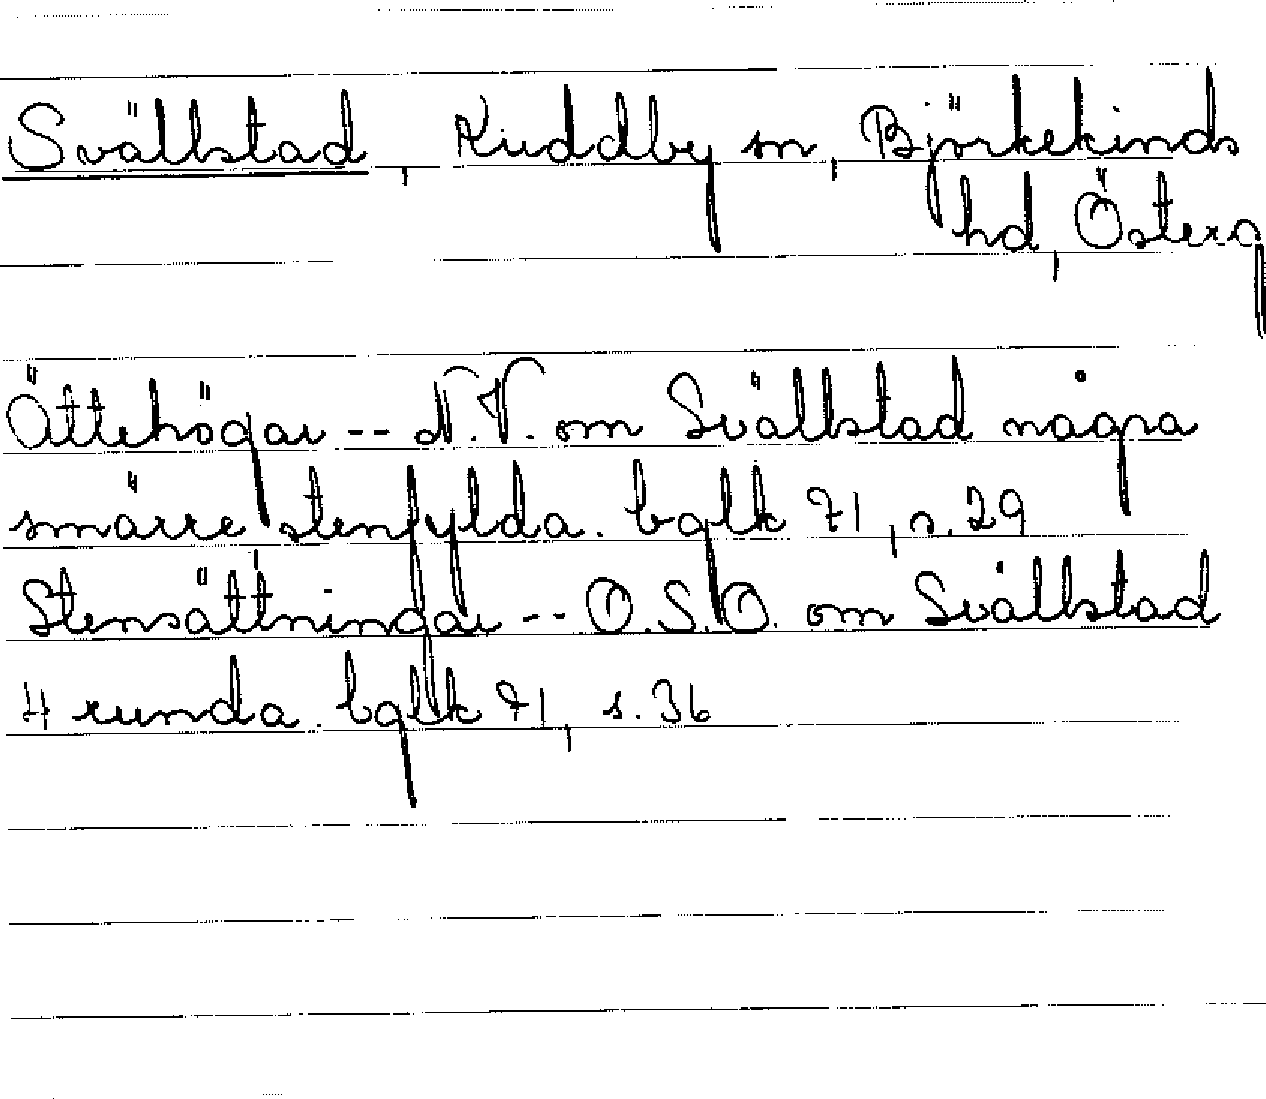 Svällstad, Kuddby sn, Björkekinds
hd, Österg
Ättehögar -- N.V. om Svällstad några
smärre stenfylda. bglk 71, s.29
Stensättningar -- O.S.O. om Svällstad
4 runda. bglk 71, s.36